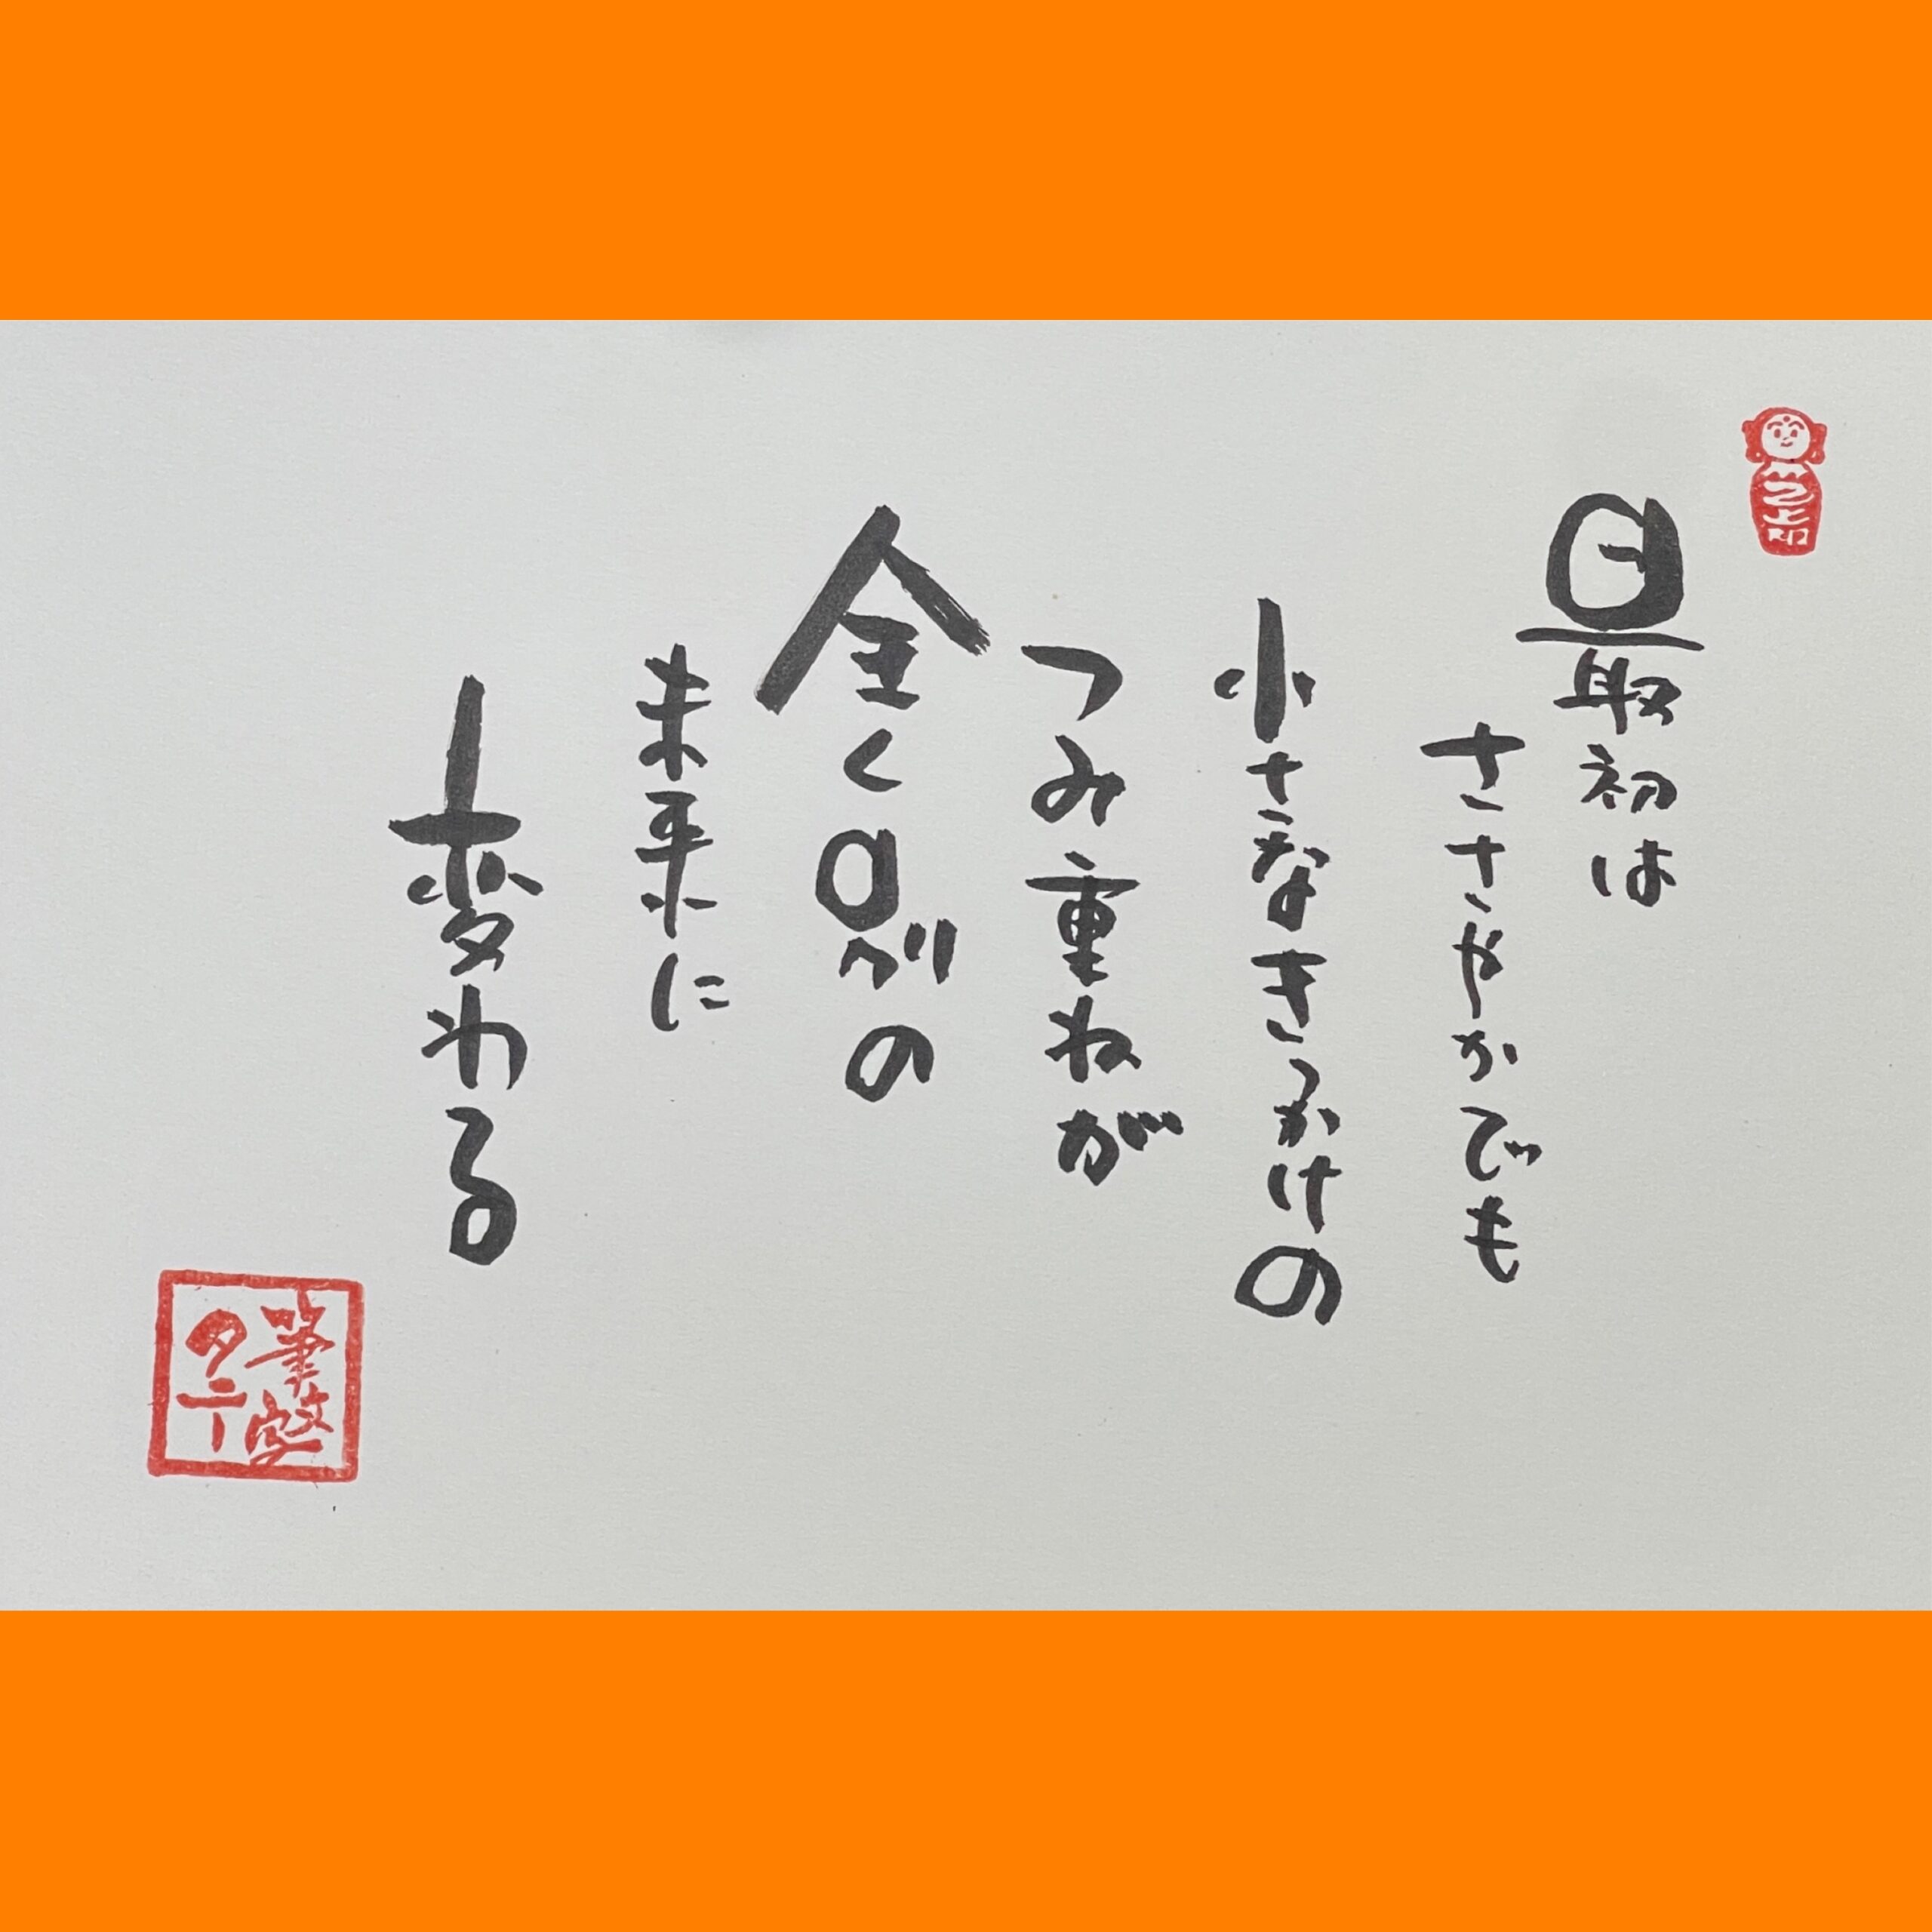 最初は
ささやかでも
小さなきっかけの
つみ重ねが
全く別の
未来に
変わる
筆文字
タニー